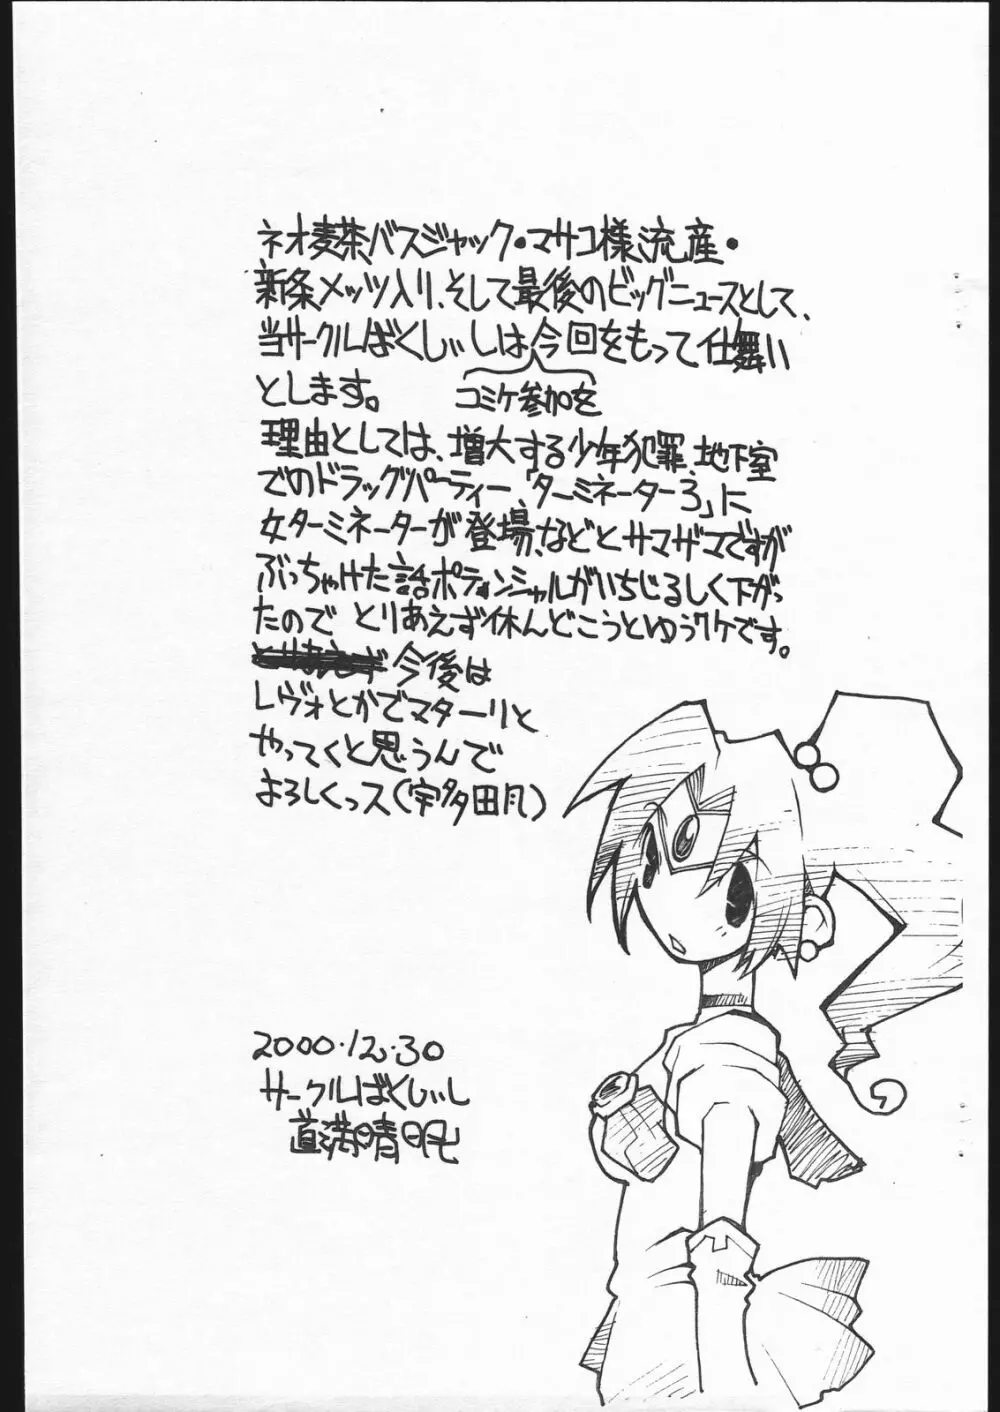 ネオ麦茶バスジャック・マサコ様流産・
新条メッツ入り、そして最後のビッグニュースとして、
当サークルばくしぃしは今回をもって仕舞い
とします。
コミケ参加を
理由としては、増大する少年犯罪、地下室
でのドラッグパーティー、「ターミネーター3」に
女ターミネーターが登場、などとサマザマですが
ぶっちゃけた話ポテンシャルがいちじるしく下がっ
たので とりあえず休んどこうとゆうワケです。
今後は
レヴォとかでマターリと
やってくと思うんで
よろしくっス(宇多田风)
2000.12.30
サークルばくしぃし
道満晴明